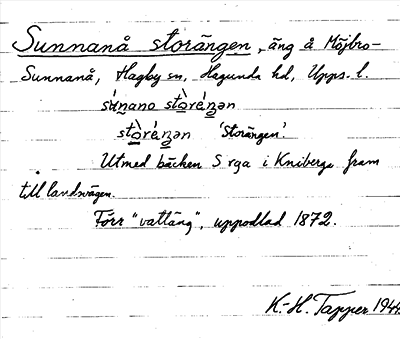 Sunnanå storängen, äng å Möjbro-
Sunnanå, Hagby sn, Hagunda hd, Upps. l.
sú̀nano stò̱rä́ŋən
stò̱ré̱ŋən 'Storängen'.
Utmed bäcken S rga i Kniberga fram
till landsvägen.
Förr "vatläng", uppodlad 1872.
K.-H. Tapper 1944